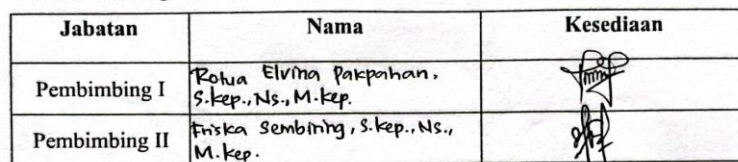 Jabatan Nama Kesediaan
Pembimbing I Rotua Elvina Pakpahan, S.kep., Ns., M.kep.
Pembimbing II Friska Sembiring, S.kep., Ns., M.kep.